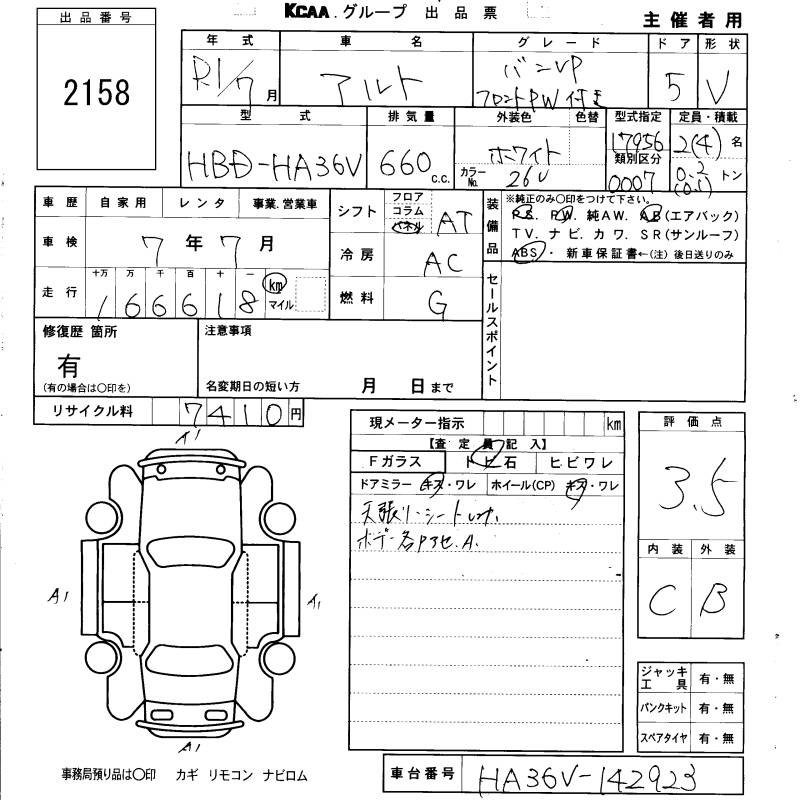 KCAA.グループ 出品票
主催者用
出品番号
2158
年式 車名 グレード ドア 形状
R1/7月 アルト バンVP 5 V
フロントPW付き
型式 排気量 外装色 色替 型式指定 定員・積載
HBD-HA36V 660 c.c. ホワイト 17956 2(4)名
カラーNo. 26U 類別区分 0007 0.2(0.1)トン
車歴 自家用 レンタ 事業.営業車
車検 7年7月
走行 十万 万 千 百 十 一
166618 km マイル
シフト フロア コラム パネル AT
冷房 AC
燃料 G
装備品
※純正のみ○印をつけて下さい。
P.S. P.W. 純AW. AB(エアバック)
TV. ナビ. カワ. SR(サンルーフ)
ABS・ 新車保証書←(注)後日送りのみ
セールスポイント
修復歴 箇所
有
(有の場合は○印を)
注意事項
名変期日の短い方 月 日まで
リサイクル料 7410円
現メーター指示 km
【査定員記入】
Fガラス トビ石 ヒビワレ
ドアミラー キズ・ワレ ホイール(CP) キズ・ワレ
天張り・シート
ボデー各
評価点
3.5
内装 外装
C B
A1
A1
A1
A1
ジャッキ工具 有・無
パンクキット 有・無
スペアタイヤ 有・無
事務局預り品は○印 カギ リモコン ナビロム
車台番号 HA36V-142923